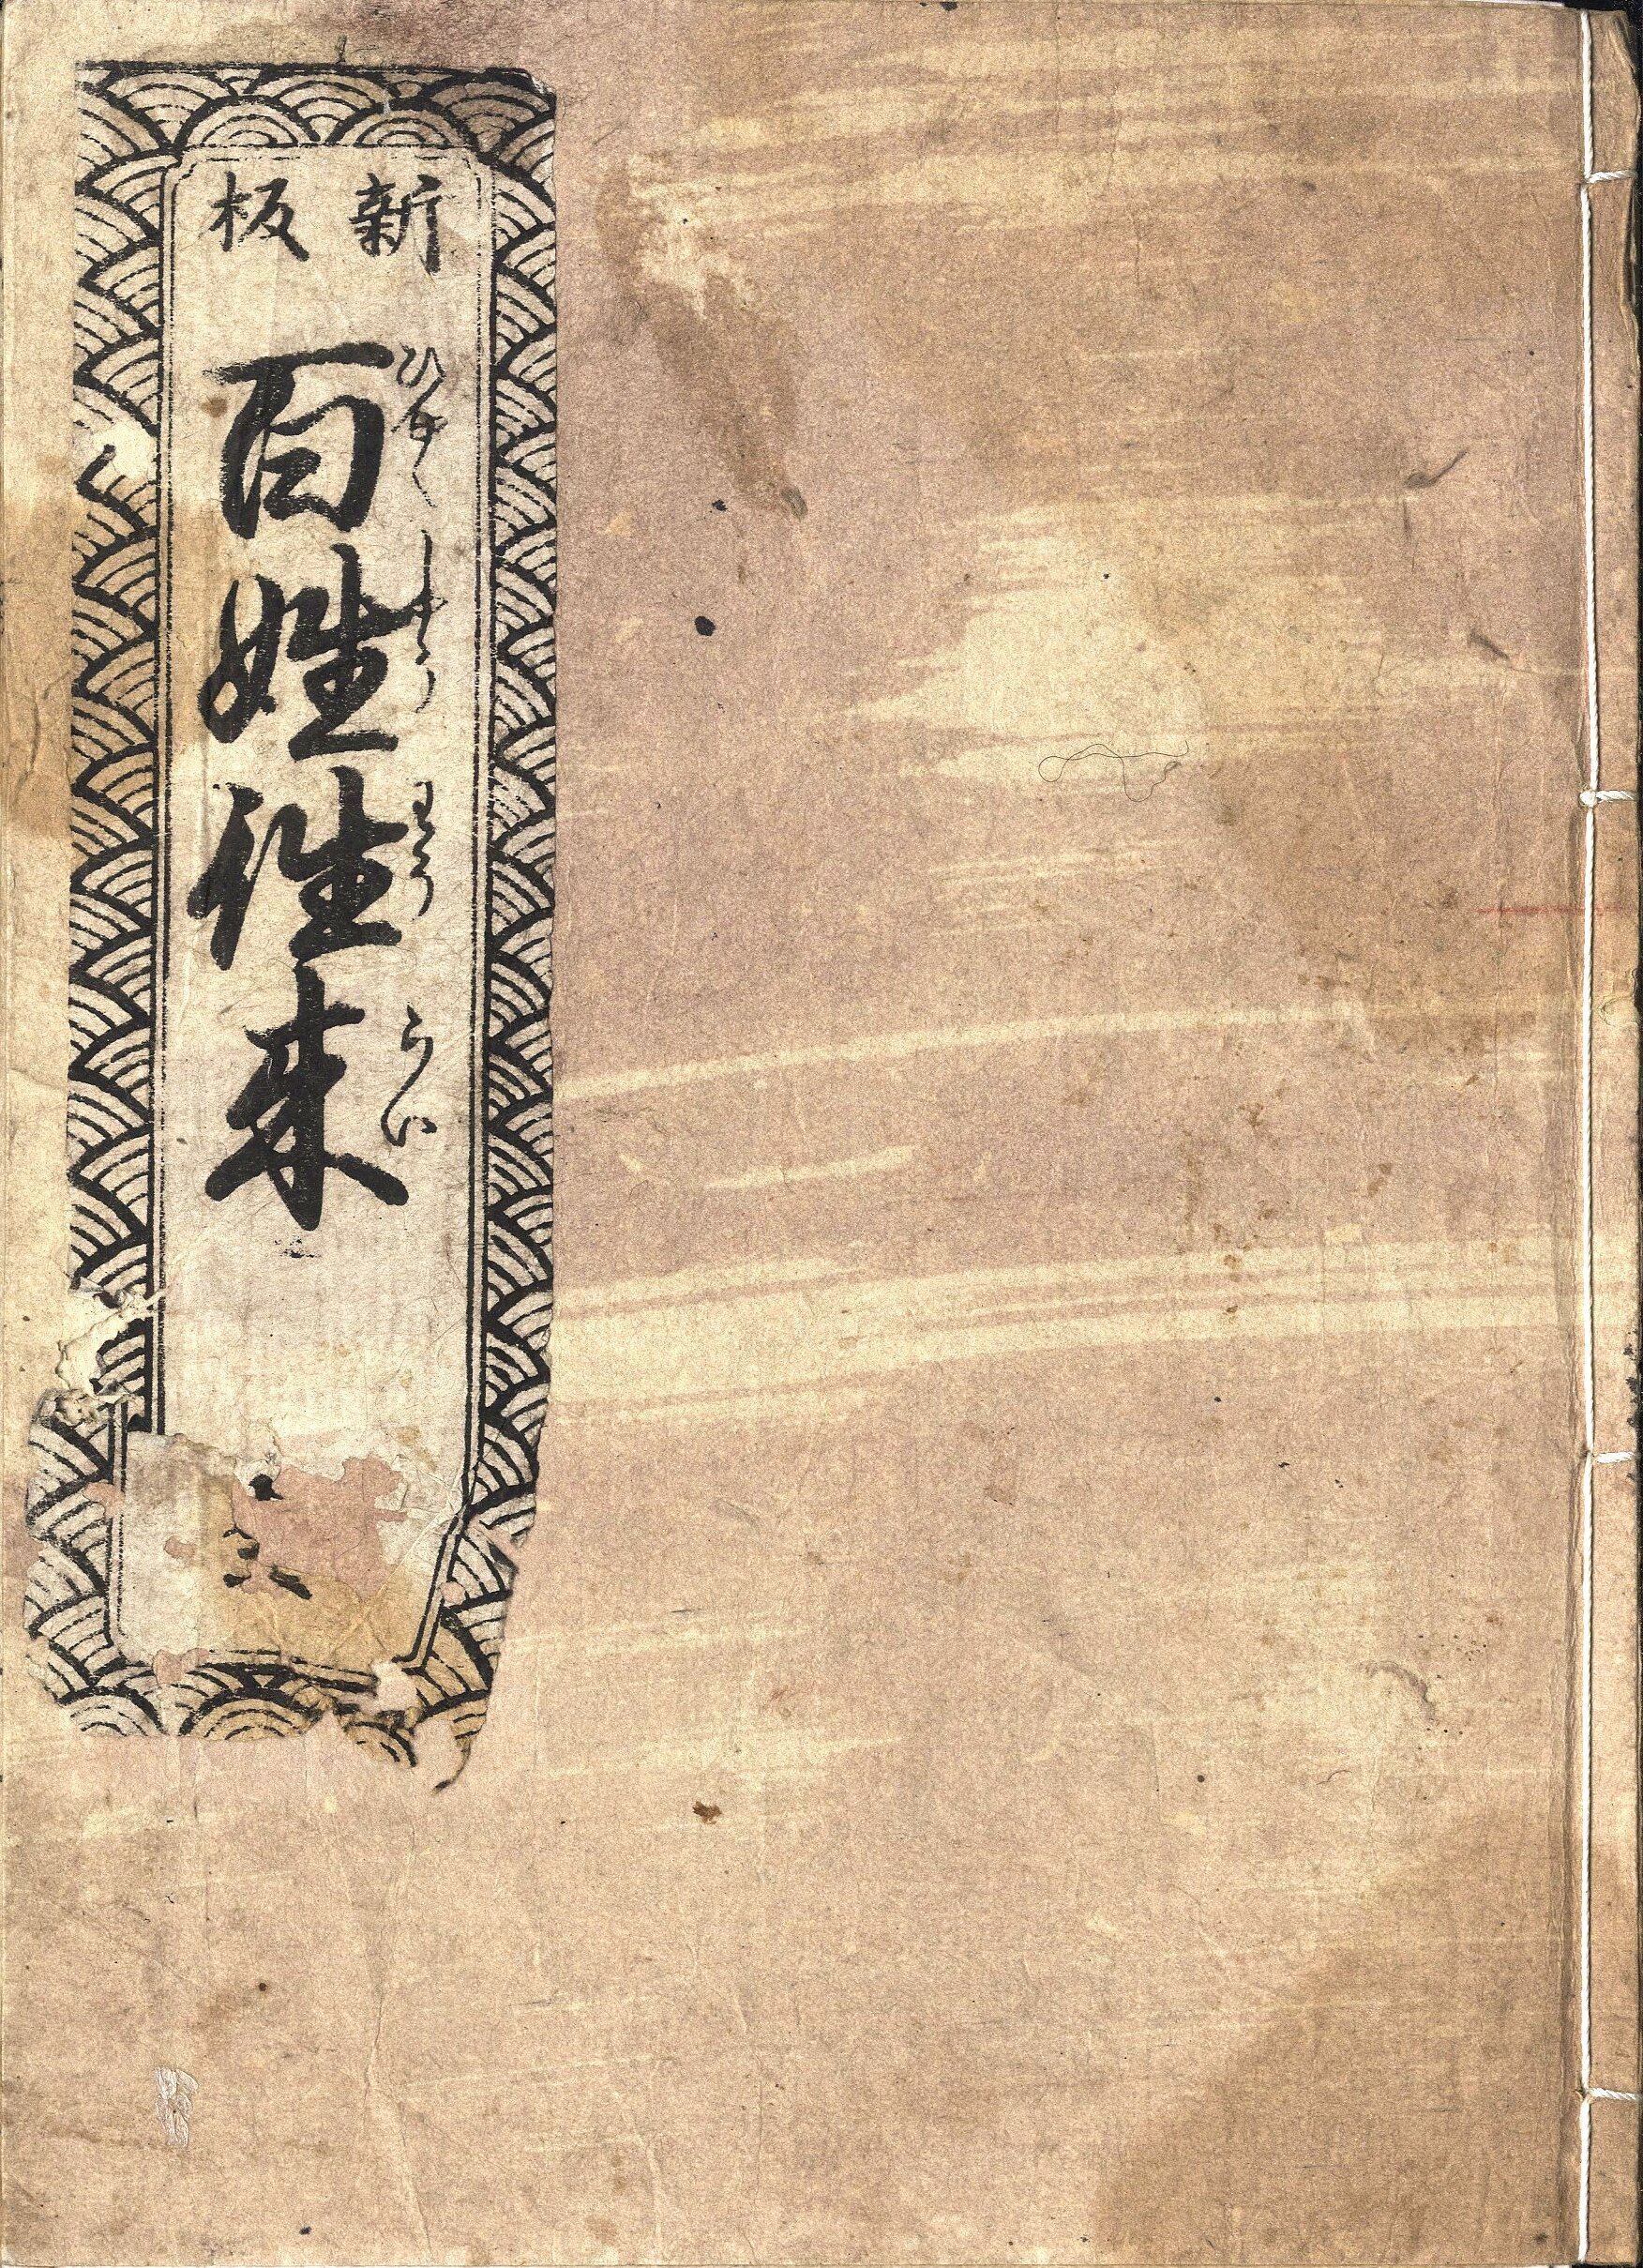 新板
百姓往来
ひやくしやうわうらい